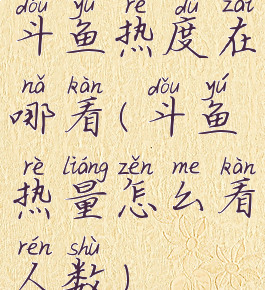 dǒu yú rè dù zài
斗鱼热度在
nǎ kàn dǒu yú
哪看(斗鱼
rè liáng zěn me kàn
热量怎么看
rén shù
人数)